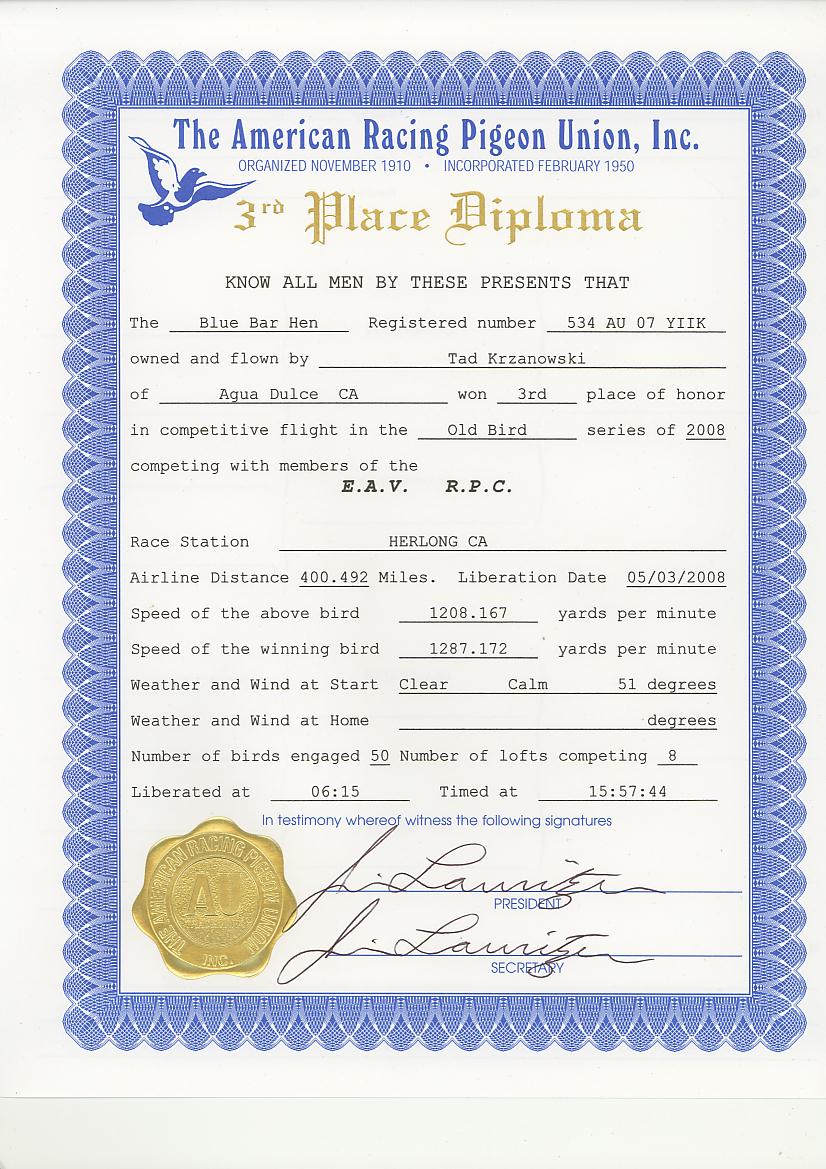 The American Racing Pigeon Union, Inc.
ORGANIZED NOVEMBER 1910 • INCORPORATED FEBRUARY 1950
3rd Place Diploma
KNOW ALL MEN BY THESE PRESENTS THAT
The Blue Bar Hen Registered number 534 AU 07 YIIK
owned and flown by Tad Krzanowski
of Agua Dulce CA won 3rd place of honor
in competitive flight in the Old Bird series of 2008
competing with members of the
E.A.V. R.P.C.
Race Station HERLONG CA
Airline Distance 400.492 Miles. Liberation Date 05/03/2008
Speed of the above bird 1208.167 yards per minute
Speed of the winning bird 1287.172 yards per minute
Weather and Wind at Start Clear Calm 51 degrees
Weather and Wind at Home degrees
Number of birds engaged 50 Number of lofts competing 8
Liberated at 06:15 Timed at 15:57:44
In testimony whereof witness the following signatures
Jim Lauritzen
PRESIDENT
Jim Lauritzen
SECRETARY
THE AMERICAN RACING PIGEON UNION
AU
INC.